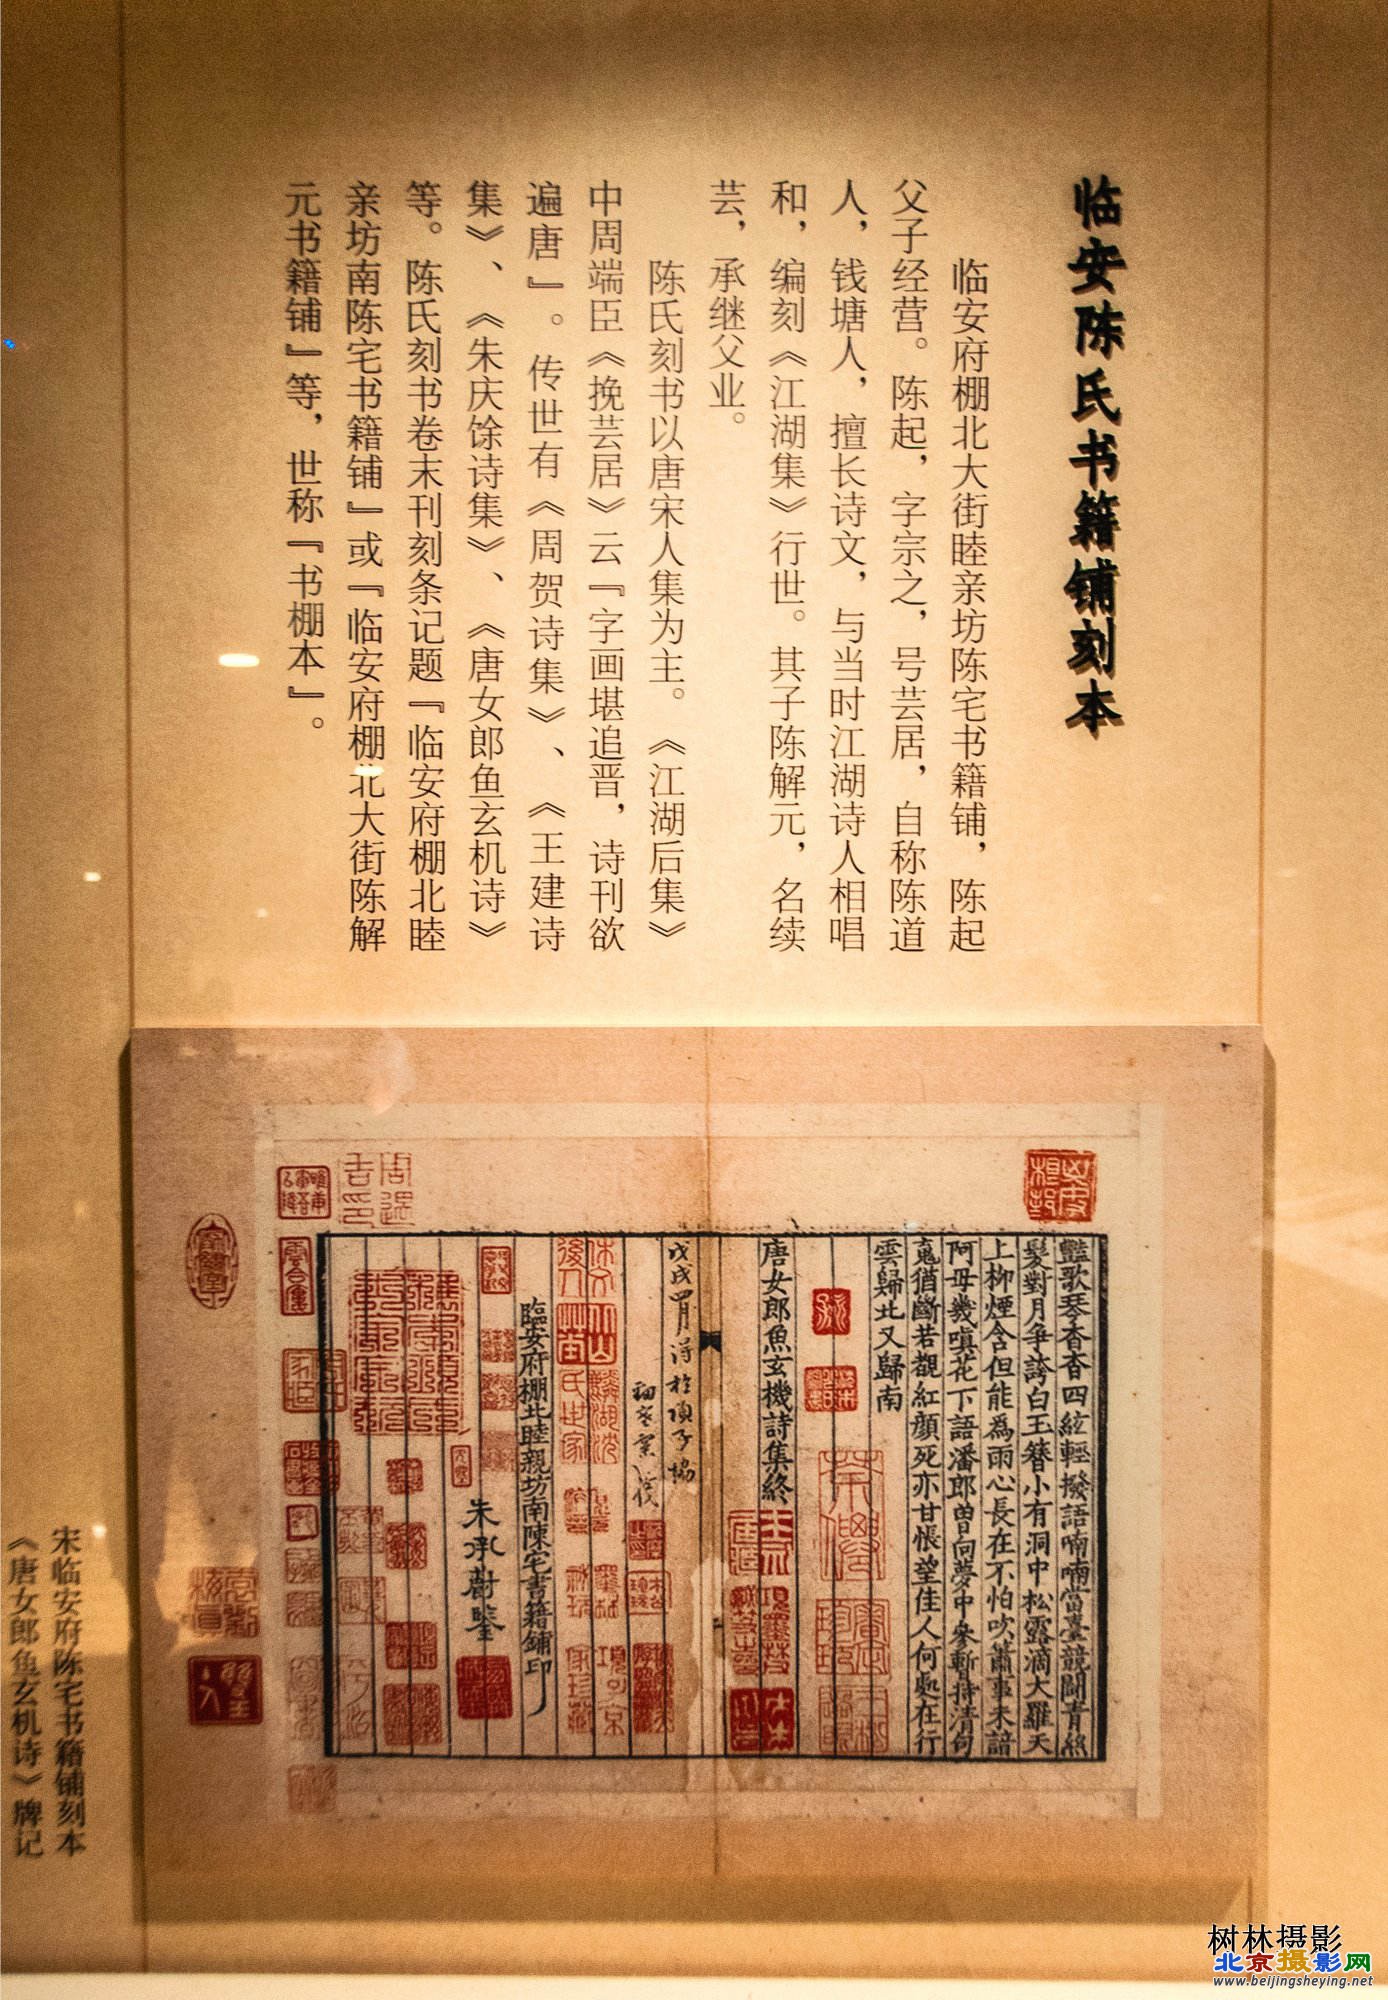 临安陈氏书籍铺刻本
临安府棚北大街睦亲坊陈宅书籍铺，陈起
父子经营。陈起，字宗之，号芸居，自称陈道
人，钱塘人，擅长诗文，与当时江湖诗人相唱
和，编刻《江湖集》行世。其子陈解元，名续
芸，承继父业。
陈氏刻书以唐宋人集为主。《江湖后集》
中周端臣《挽芸居》云『字画堪追晋，诗刊欲
遍唐』。传世有《周贺诗集》、《王建诗
集》、《朱庆馀诗集》、《唐女郎鱼玄机诗》
等。陈氏刻书卷末刊刻条记题『临安府棚北睦
亲坊南陈宅书籍铺』或『临安府棚北大街陈解
元书籍铺』等，世称『书棚本』。
豔歌琴杳杳四絃輕撥語喃喃當臺競鬬青絲
髮對月爭誇白玉簪小有洞中松露滴大羅天
上柳煙含但能為雨心長在不怕吹簫事未諳
阿母幾嗔花下語潘郎曾向夢中參暫持清句
䰟猶斷若覩紅顏死亦甘悵望佳人何處在行
雲歸北又歸南
唐女郎魚玄機詩集終
臨安府棚北睦親坊南陳宅書籍鋪印
朱承爵鑒
周遇
吉印
宋临安府陈宅书籍铺刻本
《唐女郎鱼玄机诗》牌记
树林摄影
北京摄影网
www.beijingsheying.net